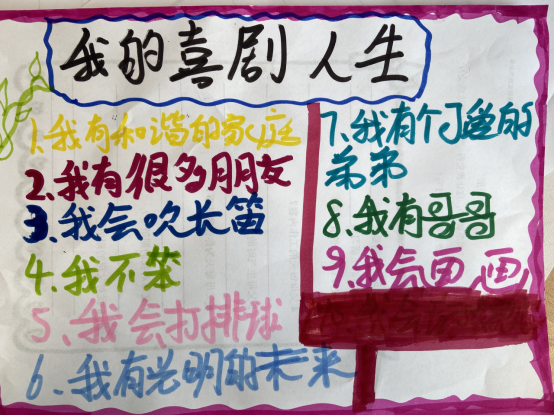 我的喜剧人生
1.我有和谐的家庭
2.我有很多朋友
3、我会吹长笛
4.我不笨
5、我会打排球
6、我有光明的未来
7、我有个可爱的
弟弟
8.我有哥哥
9.我会画画